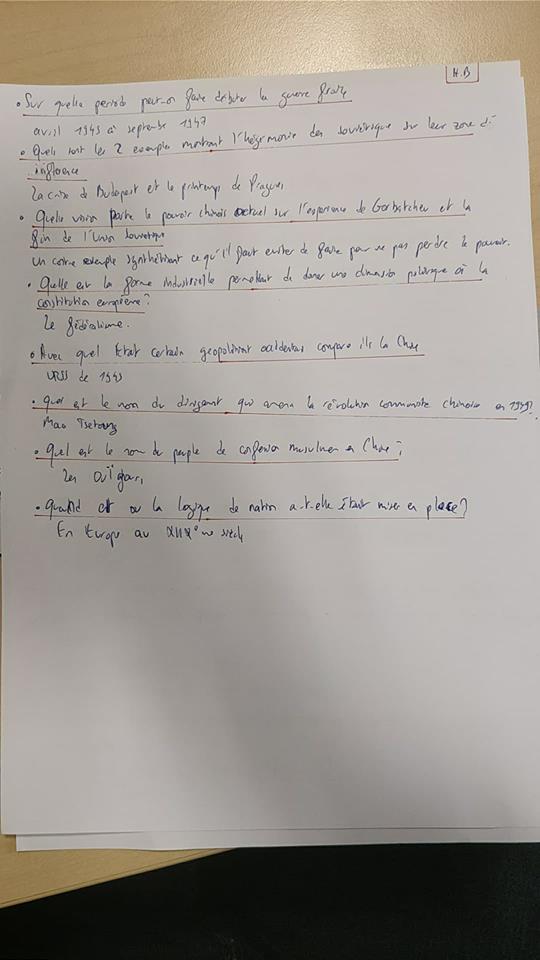 H.B
• Sur quelle période peut-on faire débuter la guerre froide
avril 1945 à septembre 1947
• Quels sont les 2 exemples montrant l'hégémonie des soviétique sur leur zone d'
influence
La crise de Budapest et le printemps de Prague,
• Quelle vision porte le pouvoir chinois actuel sur l'expérience de Gorbatchev et la
fin de l'Union Soviétique
Un contre exemple synthétisant ce qu'il faut eviter de faire pour ne pas perdre le pouvoir.
• Quelle est la forme industrielle permettant de donner une dimension politique à la
constitution européenne?
Le fédéralisme.
• Avec quel Etat certain geopolitient occidentaux compare ils la Chine
URSS de 1945
• Quel est le nom du dirigeant qui amena la révolution communiste chinoise en 1949?
Mao Tsetoung
• Quel est le nom du peuple de confession musulmane en Chine ?
Les Ouïghours,
• Quand et où la logique de nation a-t-elle était miser en place?
En Europe au siècle